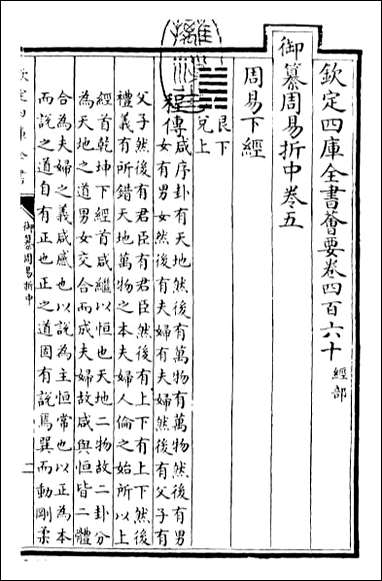 欽定四庫全書薈要卷四百六十 經部
御纂周易折中卷五
周易下經
艮下
兌上
程傳
咸序卦有天地然後有萬物有萬物然後有男
女有男女然後有夫婦有夫婦然後有父子有
父子然後有君臣有君臣然後有上下有上下然後
禮義有所錯天地萬物之本夫婦人倫之始所以上
經首乾坤下經首咸繼以恒也天地二物故二卦分
為天地之道男女交合而成夫婦故咸與恒皆二體
合為夫婦之義咸感也以說為主恒常也以正為本
而說之道自有正也正之道固有說焉巽而動剛柔
欽定四庫全書
御纂周易折中